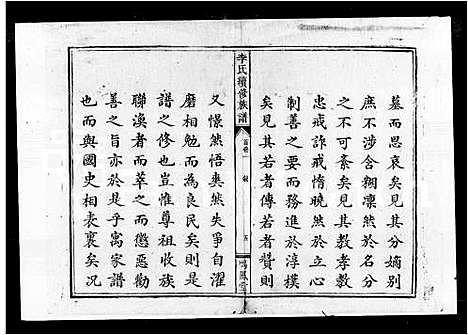 墓而思哀矣見其分嫡别
庶不涉含糊凛然於名分
之不可紊矣見其教孝教
忠戒詐戒惰曉然於善善
制善之要而務進於淳樸
矣見其若者傳若者贊則
李氏續修族譜
首卷一
五
鳴鳳堂
又憬然悟奥然失爭自濯
磨相勉而為良民矣則是
譜之修也豈惟尊祖收族
聯渙者而萃之而懲惡勸
善之旨亦於是乎寓家譜
也而與國史相表裏矣况